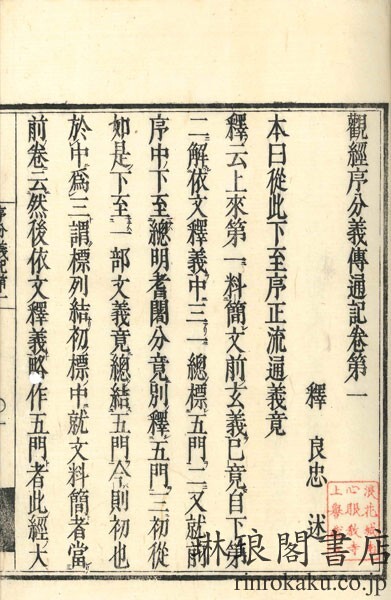 觀經序分義傳通記卷第一
釋良忠述
本曰從此下至序正流通義竟
釋云上來第一料簡文前玄義已竟自下第
二解依文釋義中三一總標五門二又就前
序中下至總明耆闍分竟別釋五門三從
如是下至一部文義竟總結五門今則初也
於中爲三謂標列結初標中就文料簡者當
前卷云然後依文釋義略作五門者此經大
琳琅閣書店
rinrokaku.co.jp